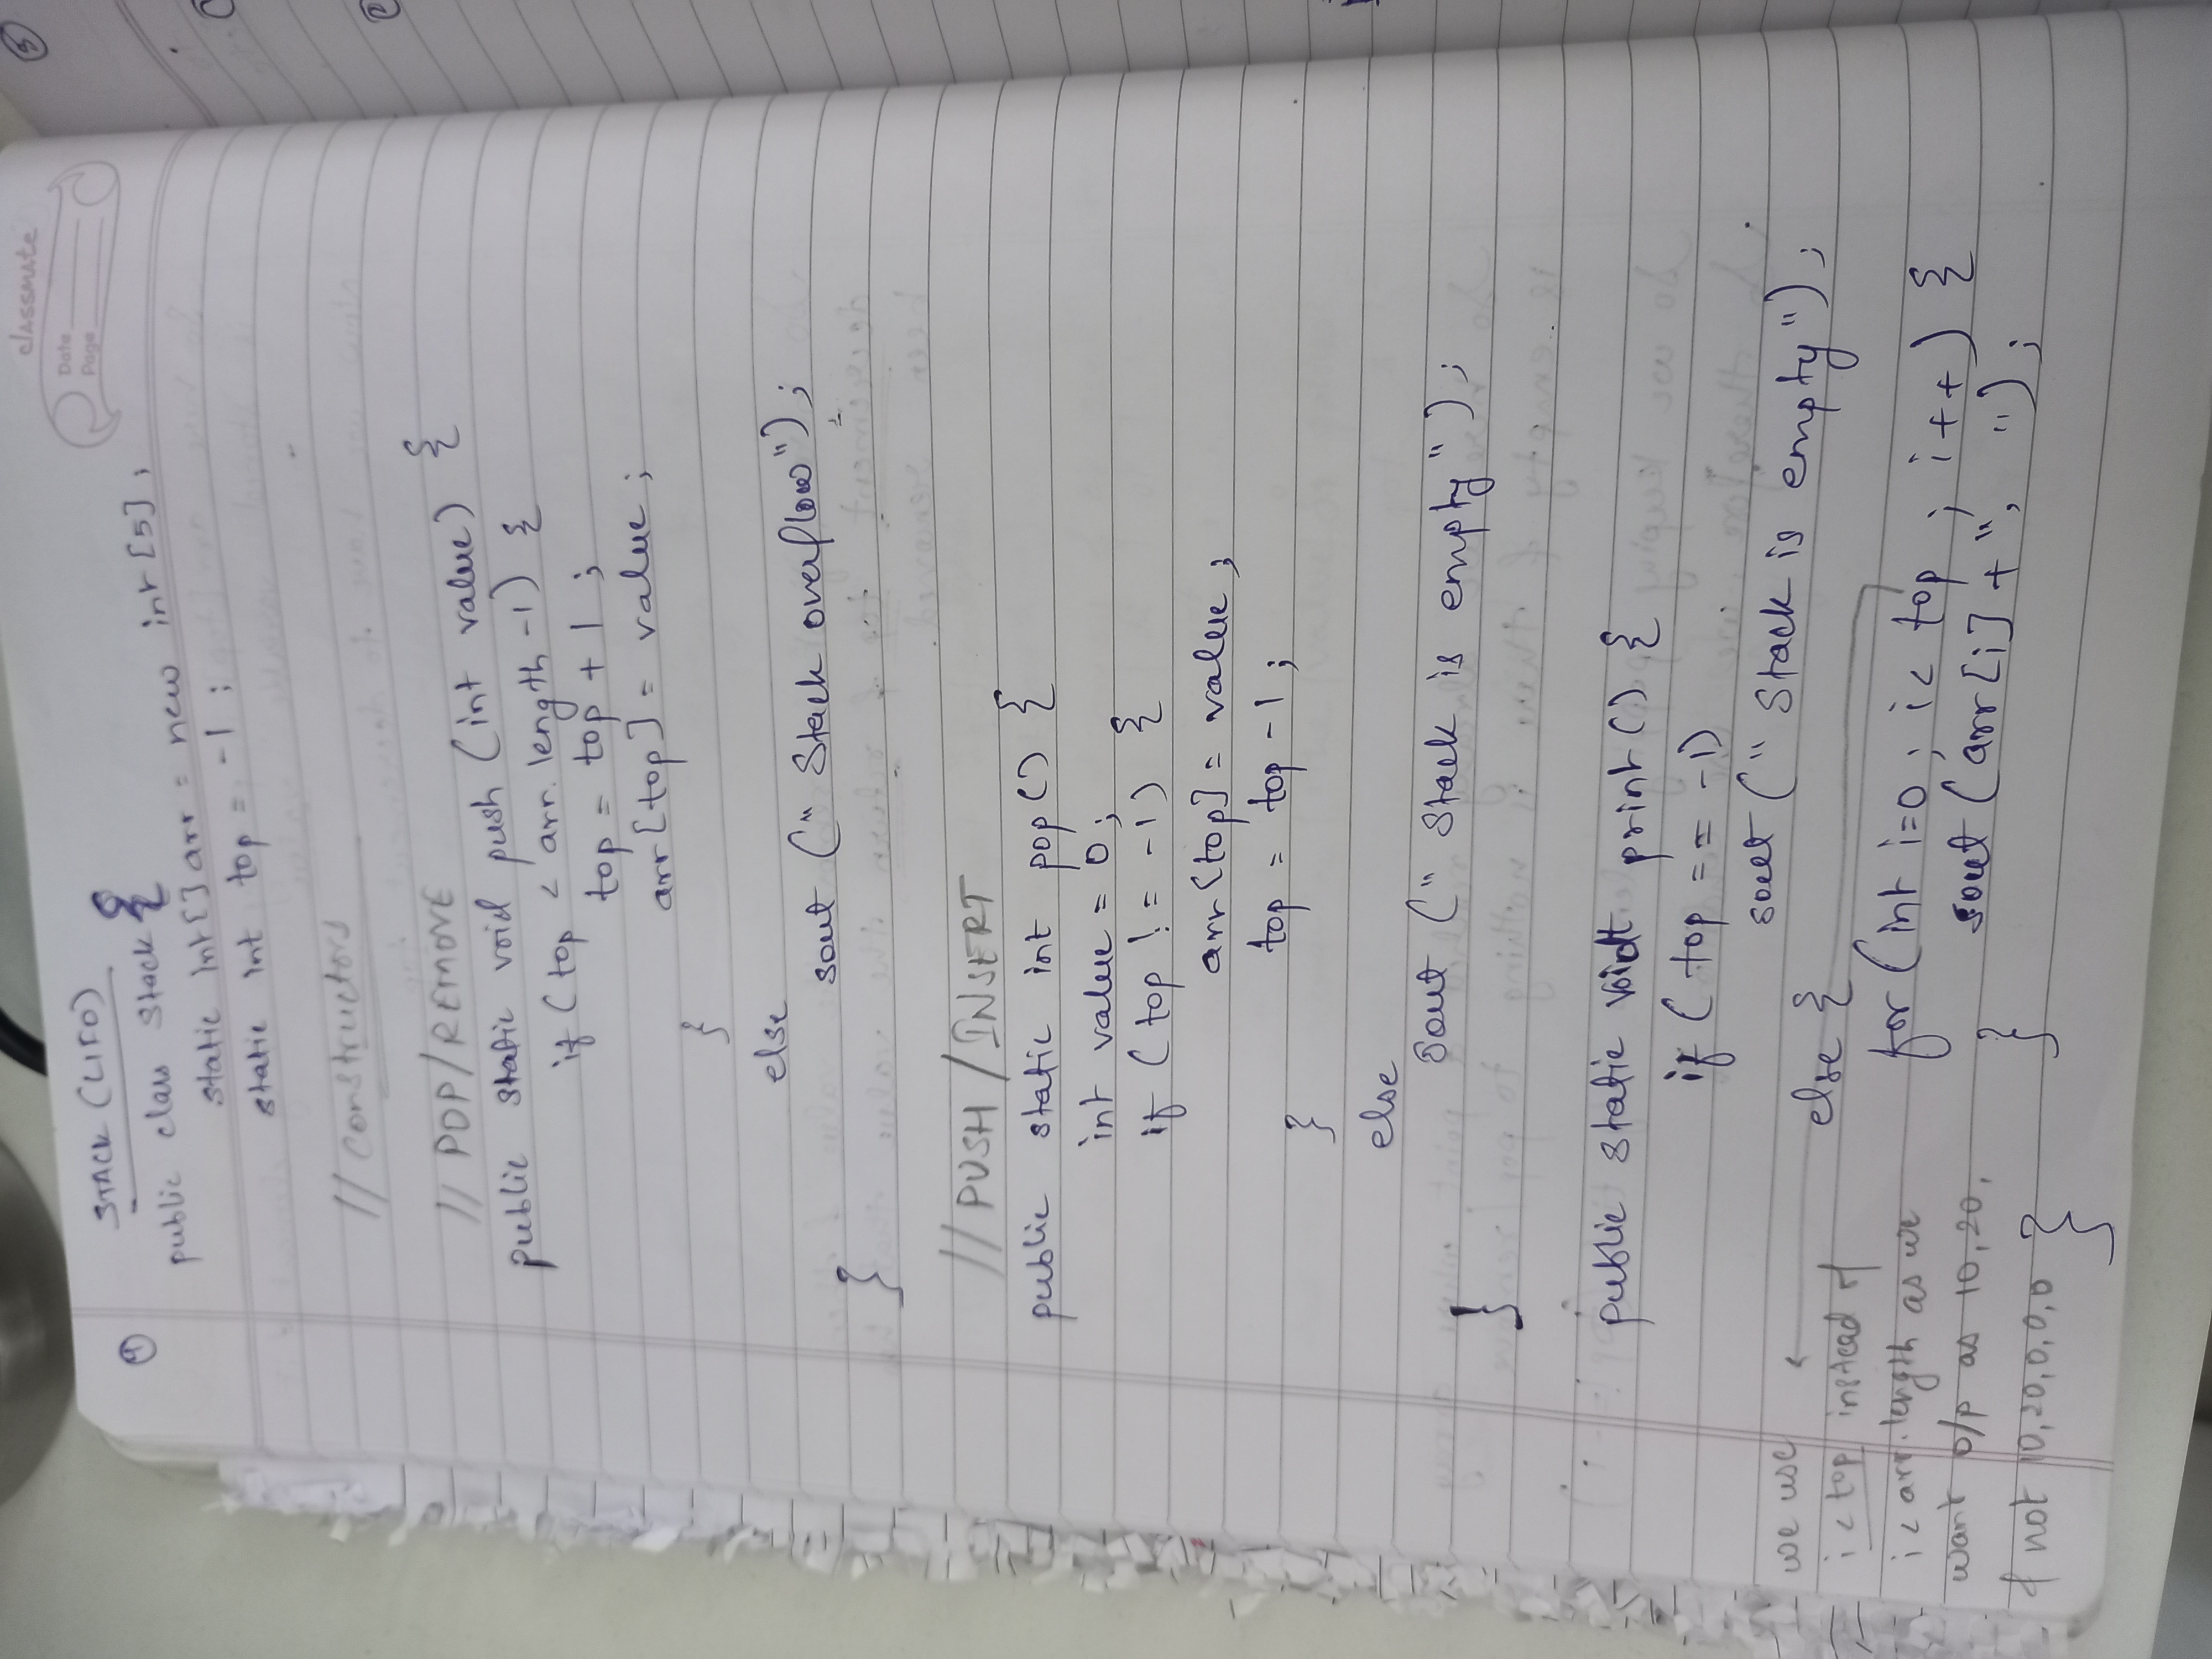 classmate
Date
Page
④ STACK (LIFO)
public class Stack {
static int[] arr = new int [5];
static int top = -1;
// Constructors
// POP/REMOVE
public static void push (int value) {
if (top < arr.length -1) {
top = top + 1;
arr[top] = value;
}
else
sout (" Stack overflow");
}
// PUSH / INSERT
public static int pop() {
int value = 0;
if (top != -1) {
arr[top] = value;
top = top - 1;
}
else
sout (" Stack is empty");
}
public static void print() {
if (top == -1)
sout (" Stack is empty");
else {
for (int i=0; i< top; i++) {
sout (arr[i] + ", ");
}
}
we use
i < top instead of
i < arr.length as we
want o/p as 10,20,
& not 10,20,0,0,0